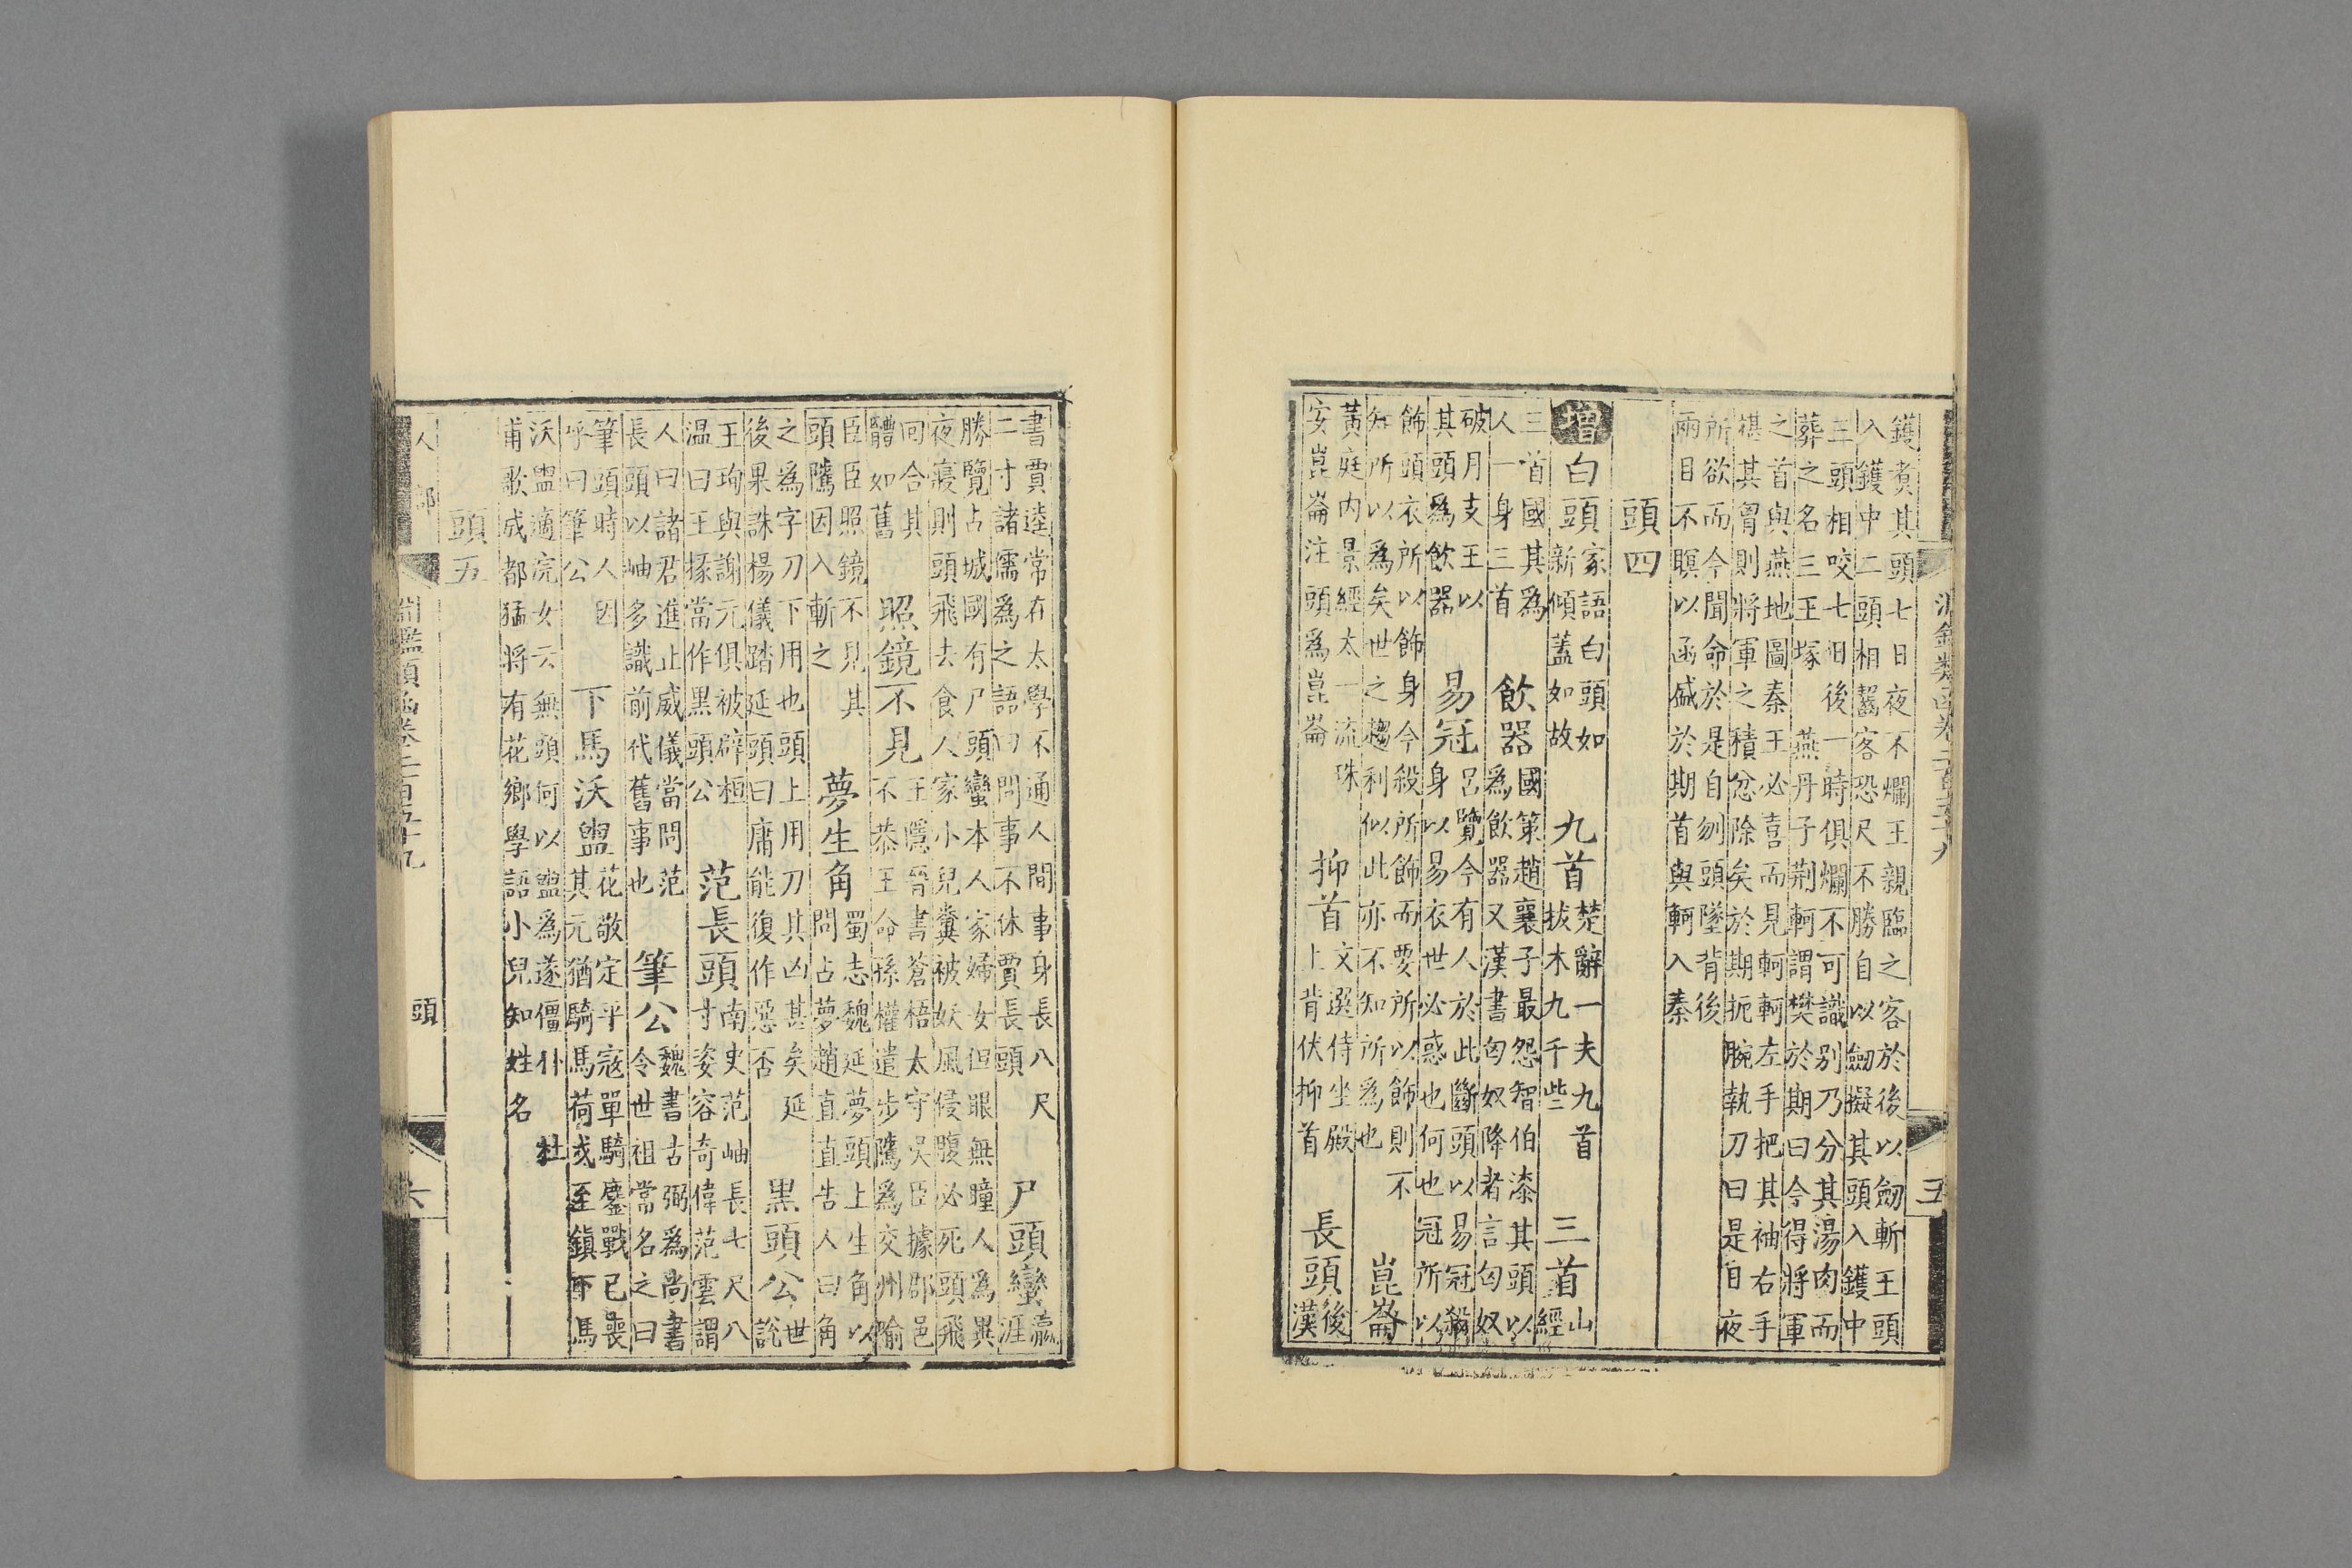 鑊煮其頭七日夜不爛王親臨之客於後以劒斬王頭
入鑊中二頭相齧客恐尺不勝自以劒擬其頭入鑊中
三頭相咬七日後一時俱爛不可識别乃分其湯肉而
葬之名三王塚　燕丹子荆軻謂樊於期曰今得將軍
之首與燕地圖秦王必喜而見軻軻左手把其袖右手
椹其胷則將軍之積忿除矣於期扼腕執刀曰是日夜
所欲而今聞命於是自刎頭墜背後
兩目不瞑以函盛於期首與軻入秦
頭四
增白頭家語白頭如
新傾蓋如故　九首楚辭一夫九首
拔木九千些　三首山
經
三首國其爲
人一身三首　飲器國策趙襄子最怨智伯漆其頭以
爲飲器又漢書匈奴降者言匈奴
破月支王以
其頭爲飲器　易冠呂覽今有人於此斷頭以易冠殺
身以易衣世必惑也何也冠所以
飾頭衣所以飾身今殺所飾而要所以飾則不
知所以爲矣世之趨利似此亦不知所爲也　崑崙
黃庭内景經太一流珠
安崑崙注頭爲崑崙　抑首文選侍坐殿
上背伏抑首　長頭後
漢
書賈逵常在太學不通人間事身長八尺
二寸諸儒爲之語曰問事不休賈長頭　尸頭蠻瀛
涯
勝覽占城國有尸頭蠻本人家婦女但眼無瞳人爲異
夜寢則頭飛去食人家小兒糞被妖風侵腹必死頭飛
回合其
體如舊　照鏡不見王隱晉書蒼梧太守吳臣據郡邑
不恭王命孫權遣步隲爲交州喻
臣臣照鏡不見其
頭隲因入斬之　夢生角蜀志魏延夢頭上生角以
問占夢趙直直告人曰角
之爲字刀下用也頭上用刀其凶甚矣延
後果誅楊儀踏延頭曰庸能復作惡否　黑頭公世
說
王珣與謝元俱被辟桓
溫曰王掾當作黑頭公　范長頭南史范岫長七尺八
寸姿容奇偉范雲謂
人曰諸君進止威儀當問范
長頭以岫多識前代舊事也　筆公魏書古弼爲尚書
令世祖常名之曰
筆頭時人因
呼曰筆公　下馬沃盥花敬定平寇單騎鏖戰已喪
其元猶騎馬荷戈至鎮下馬
沃盥適浣女云無頭何以盥爲遂僵仆　杜
甫歌成都猛將有花鄉學語小兒知姓名
頭五
人部
頭
六